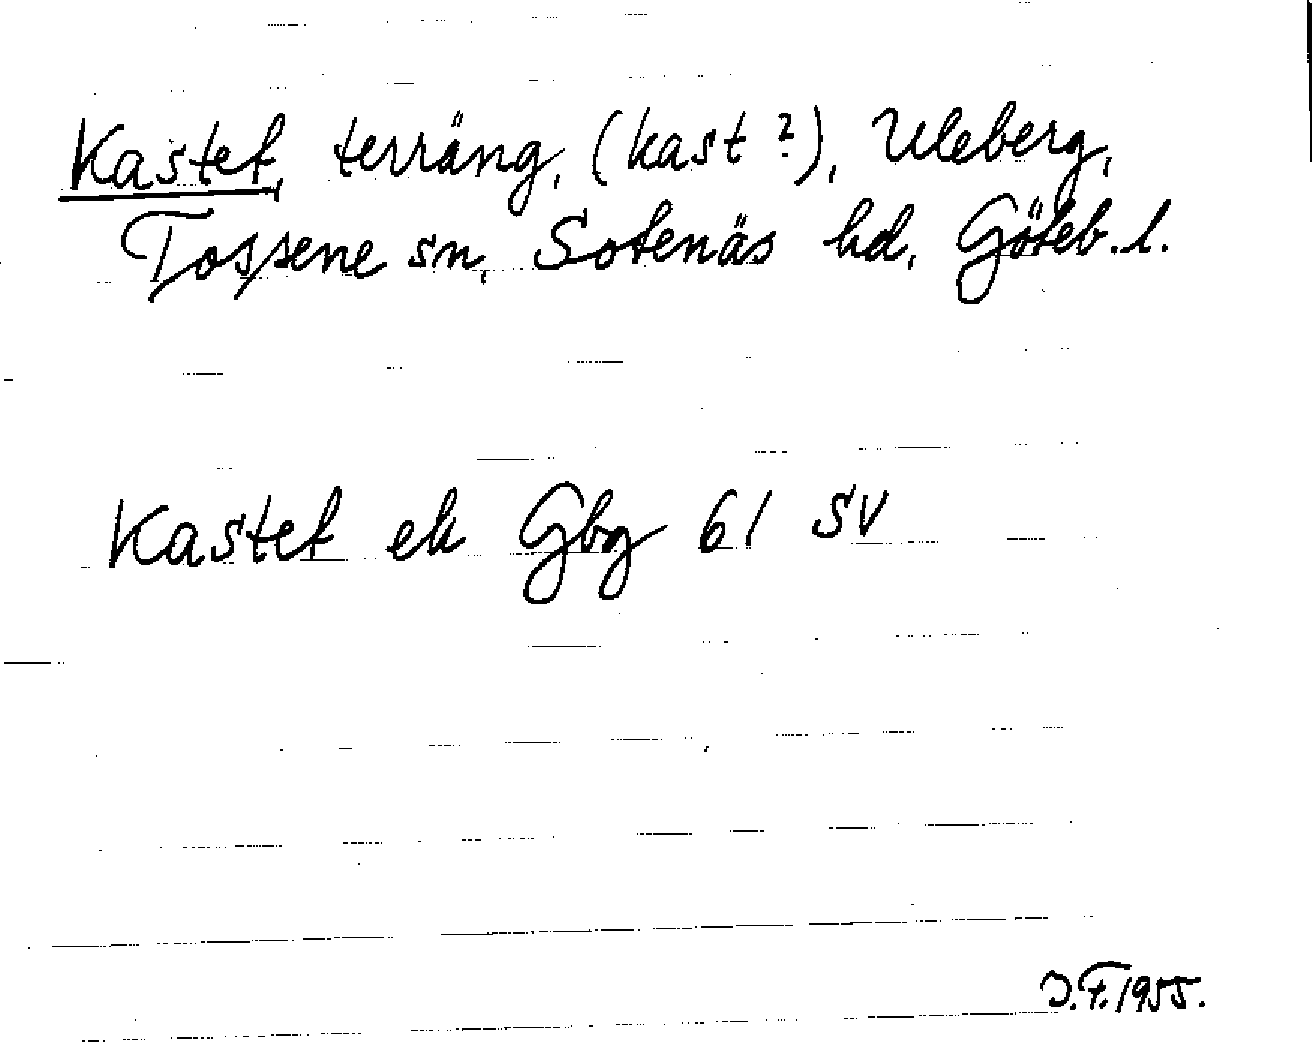 Kastet, terräng, (kast?), Uleberg,
Tossene sn, Sotenäs hd, Göteb. l.
Kastet ek Gbg 61 SV
J.F. 1955.